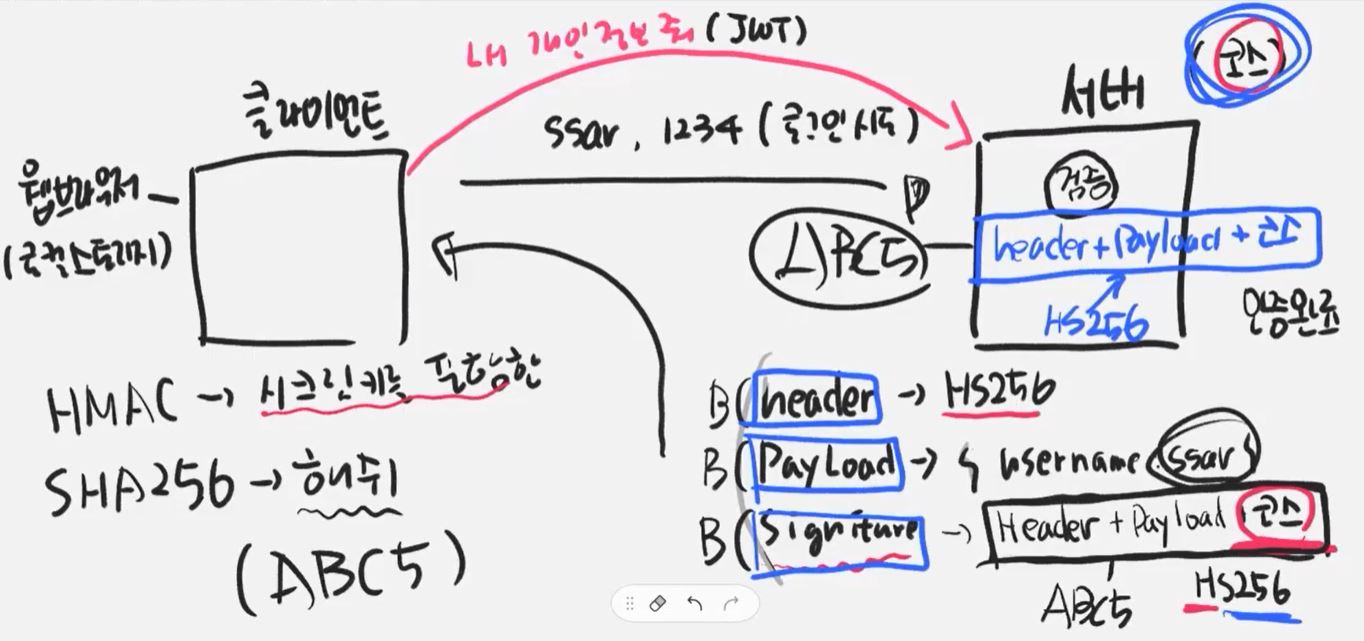 내 개인정보 줘 (JWT)
(코스)
서버
클라이언트
ssar, 1234 (로그인시도)
웹브라우저
(로컬스토리지)
검증
ABC5
header + Payload + 코스
HS256
인증완료
HMAC → 시크릿키를 포함한
SHA256 → 해쉬
(ABC5)
B(header → HS256
B(PayLoad → { username ssar }
B(Signiture → Header + Payload 코스
ABC5
HS256